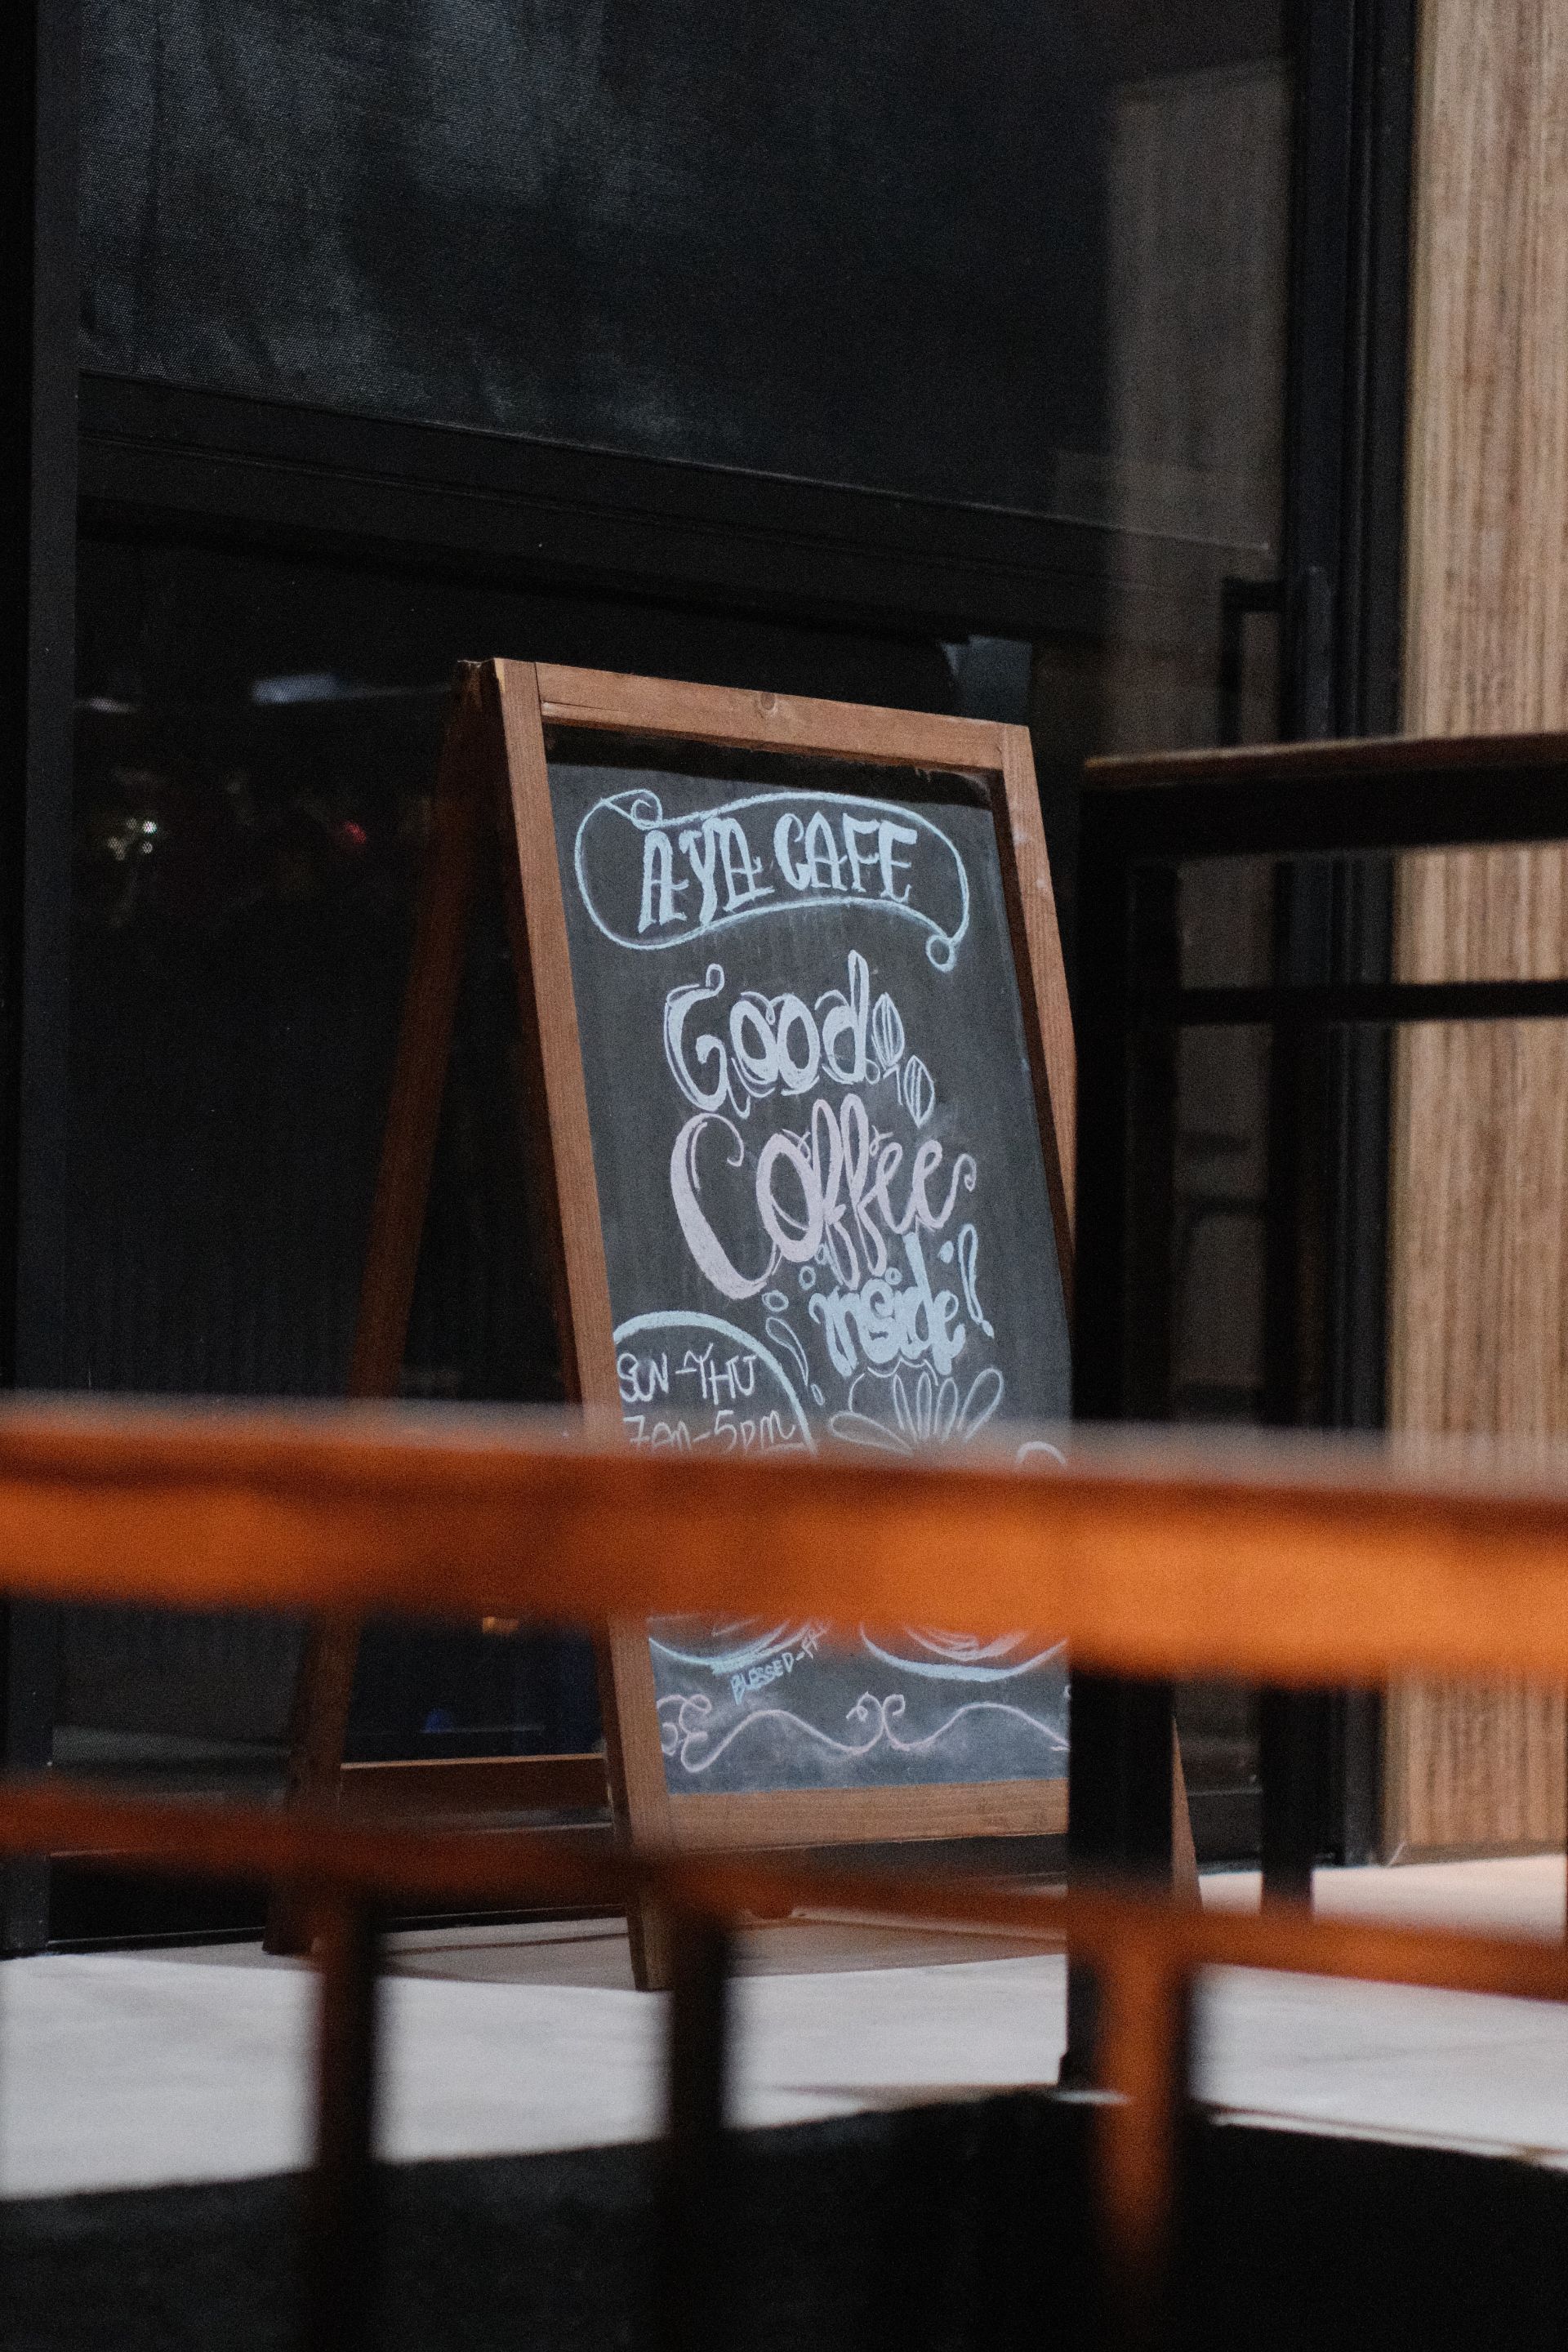 AYA CAFE
Good
Coffee
inside!
SUN-THU
7AM-5PM
BLESSED-